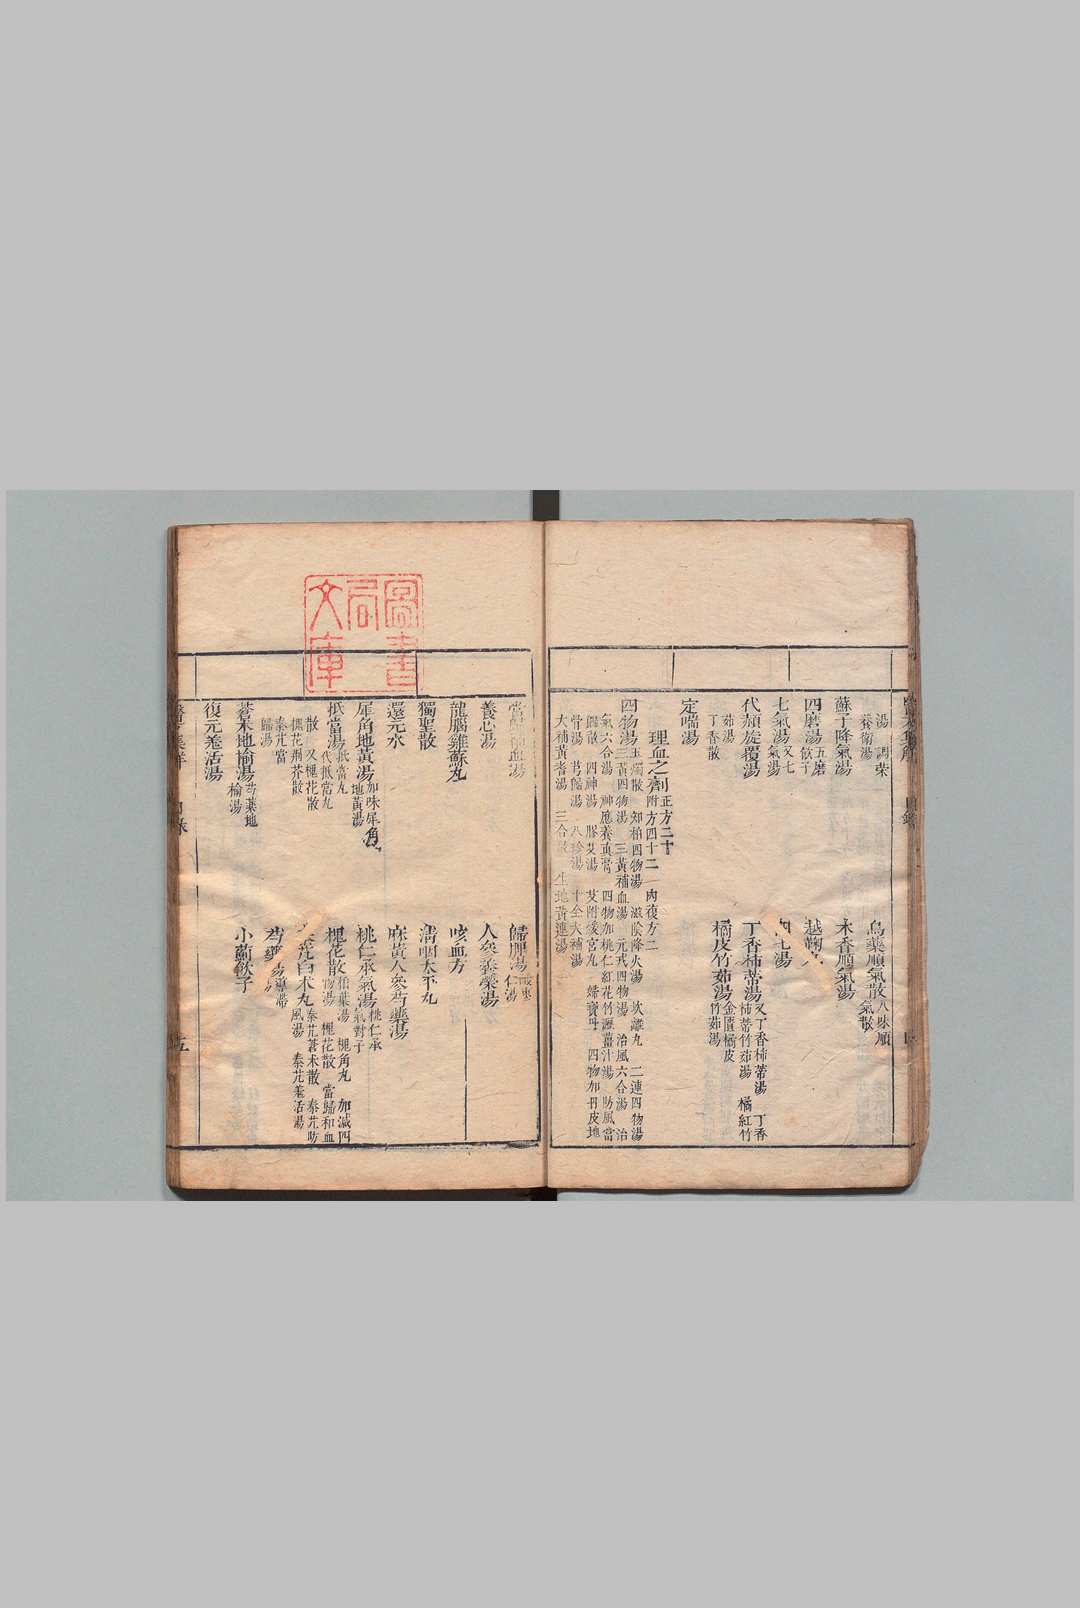 湯　調榮
養衛湯
烏藥順氣散八味順
氣散
蘇子降氣湯
木香順氣湯
四磨湯五磨
飮子
越鞠
七氣湯又七
氣湯
四七湯
代赭旋覆湯
丁香柿蒂湯又丁香柿蒂湯　丁香
柿蒂竹茹湯　橘紅竹
茹湯
丁香散
橘皮竹茹湯金匱橘皮
竹茹湯
定喘湯
理血之劑正方二十
附方四十二　內復方二
四物湯玉燭散　知柏四物湯　滋陰降火湯　坎離丸　二連四物湯
三黃四物湯　三黃補血湯　元戎四物湯　治風六合湯　治
氣六合湯　神應養眞膏　四物加桃仁紅花竹瀝薑汁湯　防風當
歸散　四神湯　膠艾湯　艾附煖宮丸　婦寶丹　四物加丹皮地
骨湯　芎歸湯　八珍湯　十全大補湯
大補黃耆湯　三合散　生地黃連湯
圖書
局
文庫
當歸補血湯
歸脾湯
仁湯
養心湯
人參養榮湯
龍腦雞蘇丸
咳血方
獨聖散
清咽太平丸
還元水
麻黃人參芍藥湯
犀角地黃湯加味犀角
地黃湯
桃仁承氣湯桃仁承
氣對子
抵當湯抵當丸
代抵當丸
槐花散柏葉湯　槐角丸　加減四
物湯　槐花散　當歸和血
散　又槐花散
槐花荊芥散
秦艽白朮丸秦艽蒼朮散　秦艽防
風湯　秦艽羌活湯
秦艽當
歸湯
芍藥湯導滯
湯
蒼朮地榆湯芍藥地
榆湯
小薊飮子
復元羌活湯
五